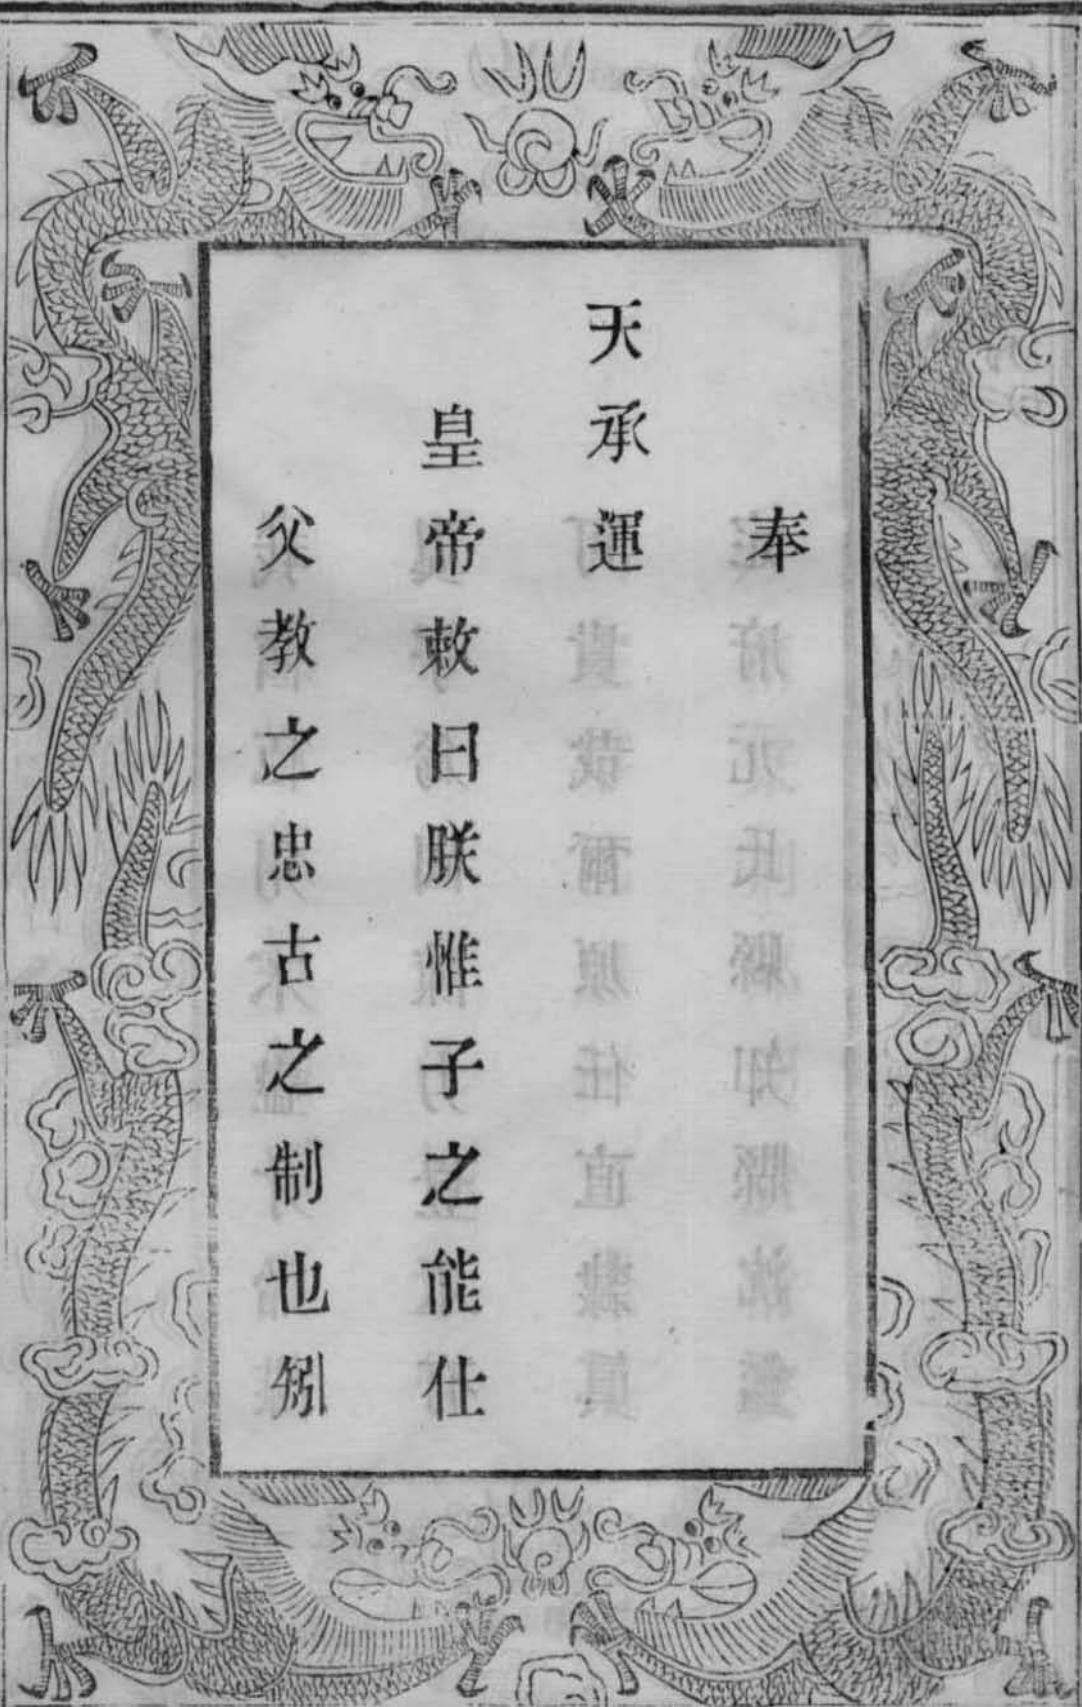 奉
天承運
皇帝敕曰朕惟子之能仕
父教之忠古之制也矧